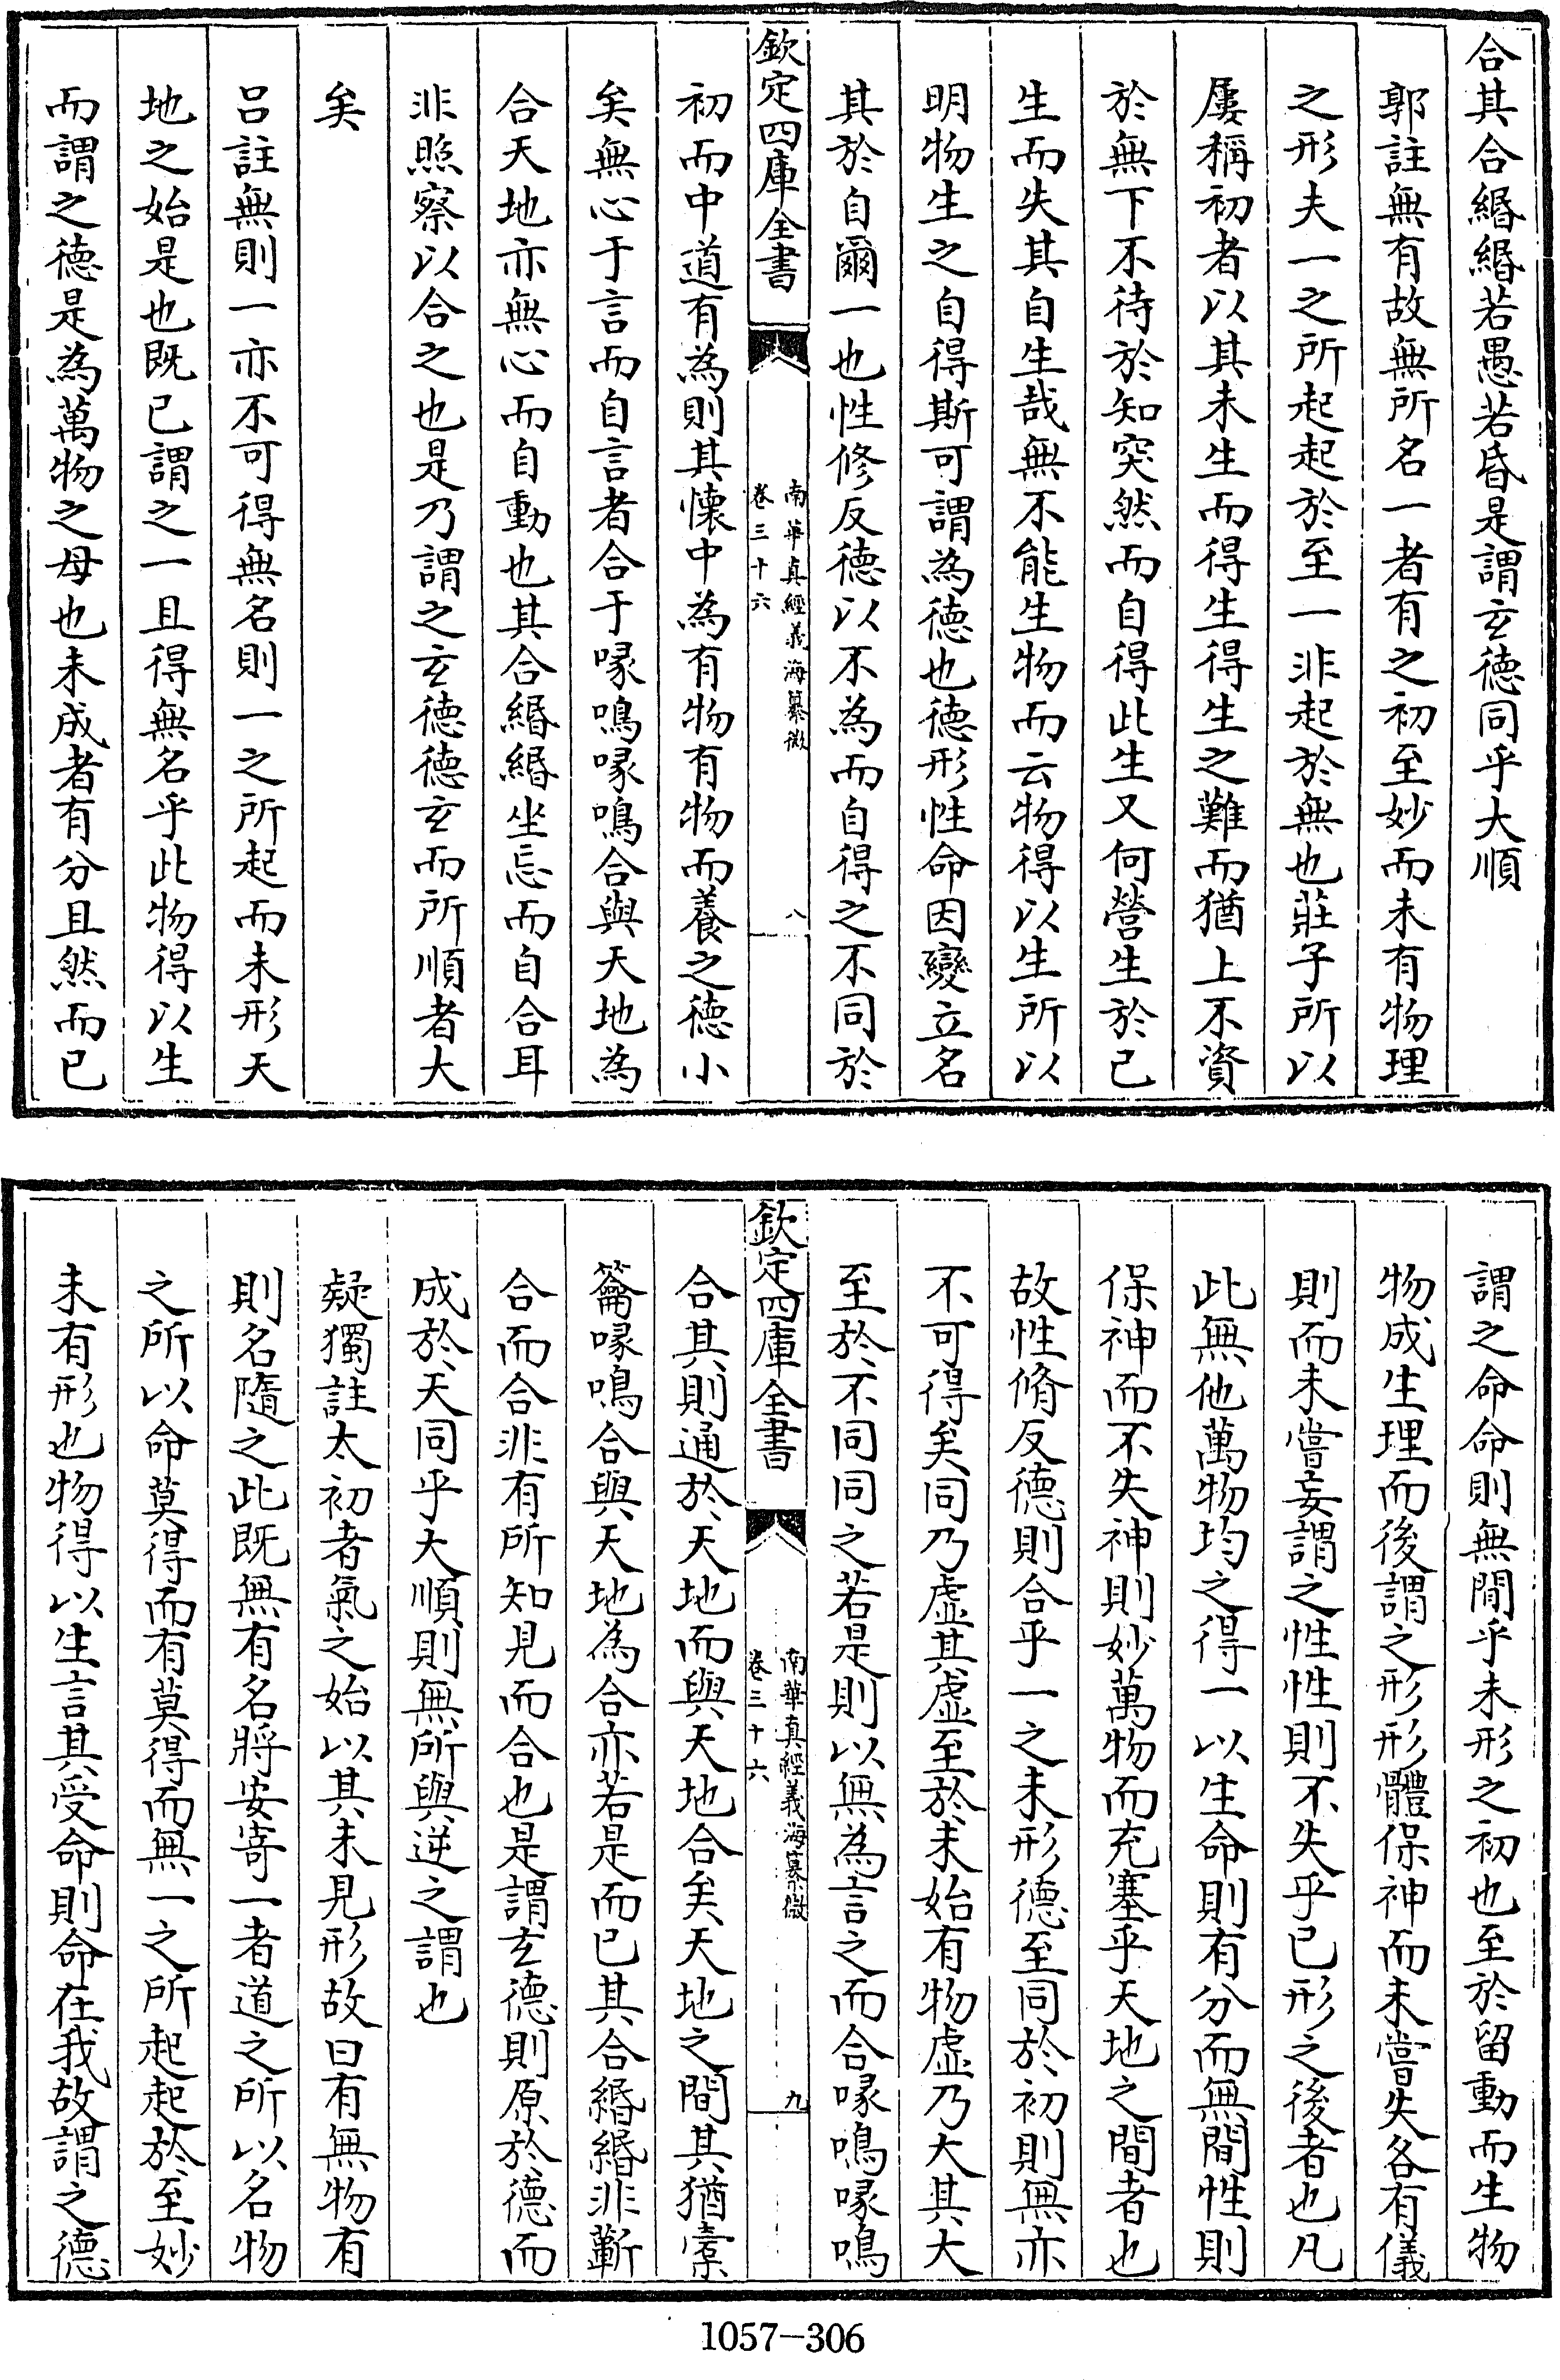 合其合緡緡若愚若昏是謂玄德同乎大順
郭註無有故無所名一者有之初至妙而未有物理
之形夫一之所起起於至一非起於無也莊子所以
屢稱初者以其未生而得生得生之難而猶上不資
於無下不待於知突然而自得此生又何營生於已
生而失其自生哉無不能生物而云物得以生所以
明物生之自得斯可謂為德也德形性命因變立名
其於自爾一也性修反德以不為而自得之不同於
欽定四庫全書
南華真經義海纂微
卷三十六
八
初而中道有為則其懷中為有物有物而養之德小
矣無心于言而自言者合于喙鳴喙鳴合與天地為
合天地亦無心而自動也其合緡緡坐忘而自合耳
非照察以合之也是乃謂之玄德德玄而所順者大
矣
呂註無則一亦不可得無名則一之所起而未形天
地之始是也既已謂之一且得無名乎此物得以生
而謂之德是為萬物之母也未成者有分且然而已
謂之命命則無間乎未形之初也至於留動而生物
物成生理而後謂之形形體保神而未嘗失各有儀
則而未嘗妄謂之性性則不失乎已形之後者也凡
此無他萬物均之得一以生命則有分而無間性則
保神而不失神則妙萬物而充塞乎天地之間者也
故性脩反德則合乎一之未形德至同於初則無亦
不可得矣同乃虛其虛至於未始有物虛乃大其大
至於不同同之若是則以無為言之而合喙鳴喙鳴
欽定四庫全書
南華真經義海纂微
卷三十六
九
合其則通於天地而與天地合矣天地之間其猶橐
籥喙鳴合與天地為合亦若是而已其合緡緡非蘄
合而合非有所知見而合也是謂玄德則原於德而
成於天同乎大順則無所與逆之謂也
疑獨註太初者氣之始以其未見形故曰有無物有
則名隨之此既無有名將安寄一者道之所以名物
之所以命莫得而有莫得而無一之所起起於至妙
未有形也物得以生言其受命則命在我故謂之德
1057-306